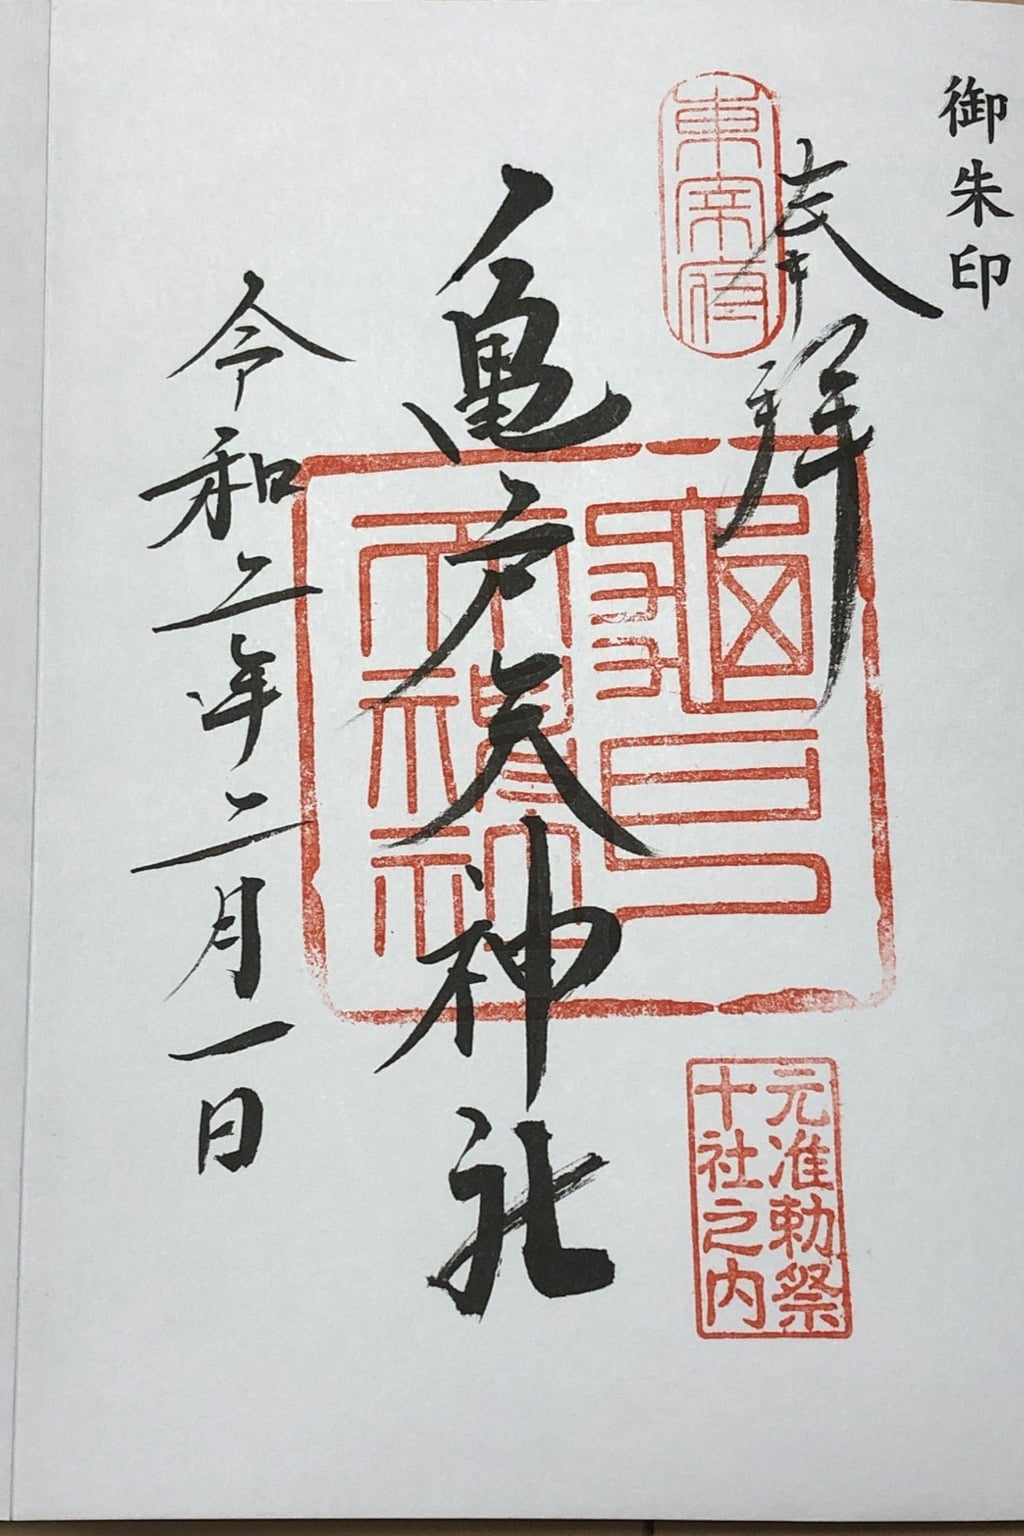 御朱印
奉拝
東宰府
亀戸天神社
龜戸天神社
元准勅祭
十社之内
令和二年二月一日